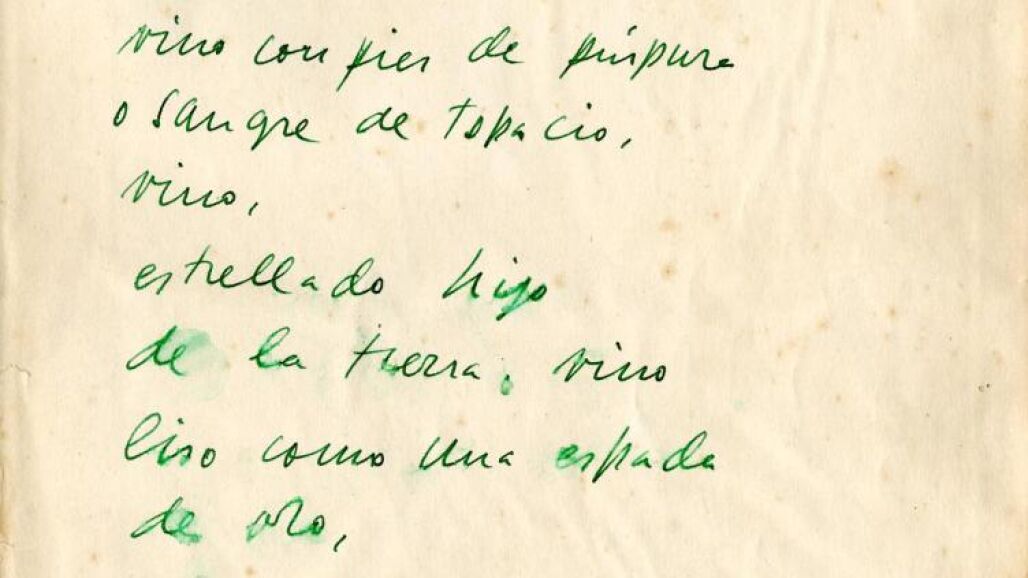 vino con pies de púrpura
o sangre de topacio,
vino,
estrellado hijo
de la tierra, vino
liso como una espada
de oro,